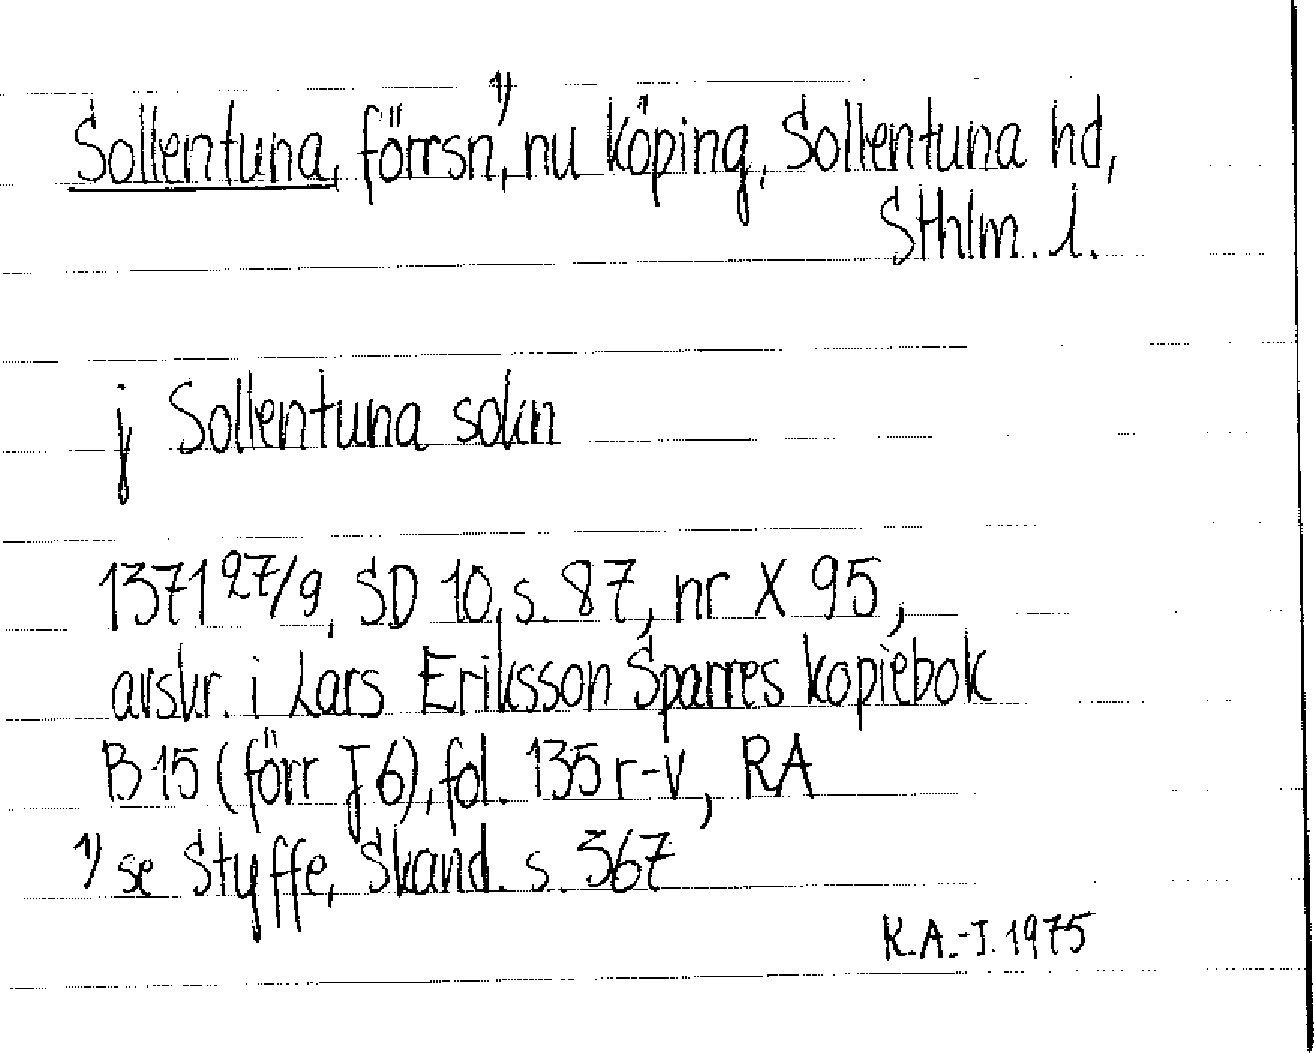 Sollentuna, förrsn,¹⁾ nu köping, Sollentuna hd,
Sthlm. l.
j Sollentuna sokn
1371 27/9, SD 10, s. 87, nr X 95,
avskr. i Lars Eriksson Sparres kopiebok
B 15 (förr J 6), fol. 135 r-v, RA
¹⁾ se Styffe, Skand. s. 367
K.A.-I. 1975